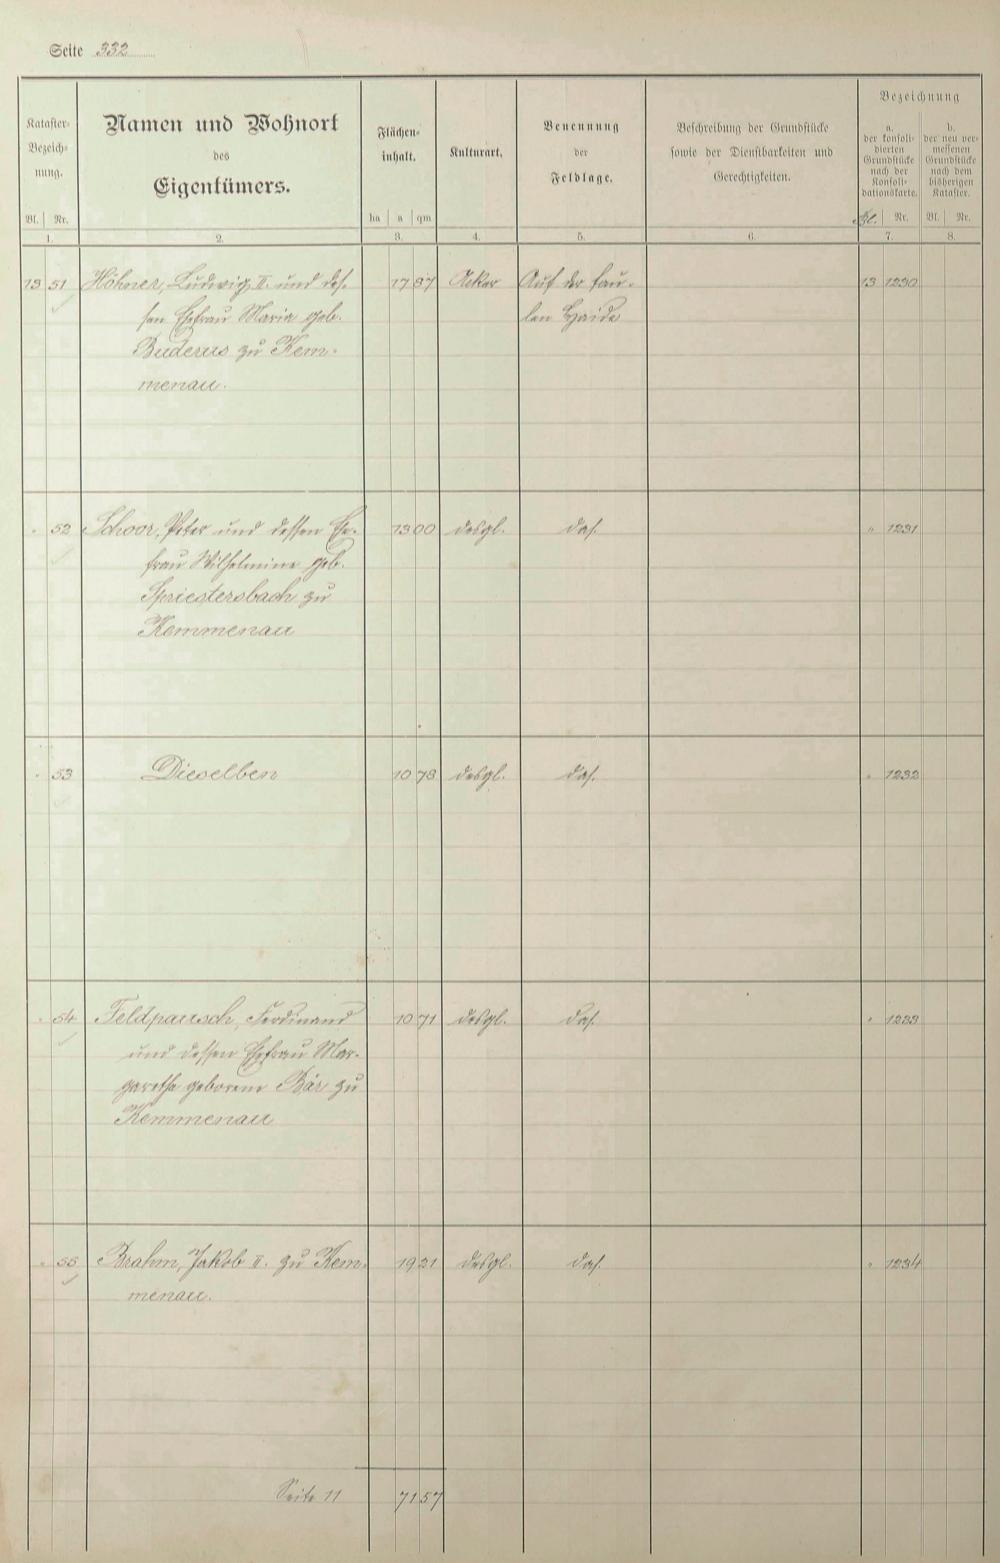 Seite 332
Kataster-Bezeichnung.
Bl. Nr.
Namen und Wohnort
des
Eigentümers.
Flächeninhalt.
ha a qm
Kulturart.
Benennung
der
Feldlage.
Beschreibung der Grundstücke
sowie der Dienstbarkeiten und
Gerechtigkeiten.
Bezeichnung
a.
der konsoli-
dierten
Grundstücke
nach der
Konsoli-
dationskarte.
Kbl. Nr.
b.
der neu ver-
messenen
Grundstücke
nach dem
bisherigen
Kataster.
Bl. Nr.
1. 2. 3. 4. 5. 6. 7. 8.
13 51 Höhner, Ludwig II. und des- 17 87 Acker Auf der fau- 13 1230
sen Ehefrau Maria geb. len Haide
Buderus zu Kem-
menau.
" 52 Schoor, Peter und dessen Ehe- 13 00 desgl. das. " 1231
frau Wilhelmine geb.
Spriestersbach zu
Kemmenau
" 53 Dieselben 10 78 desgl. das. " 1232
" 54 Feldpausch, Ferdinand 10 71 desgl. das. " 1233
und dessen Ehefrau Mar-
garetha geborene Bär zu
Kemmenau
" 55 Brahm, Jakob II. zu Kem- 19 21 desgl. das. " 1234
menau.
Seite 11 71 57